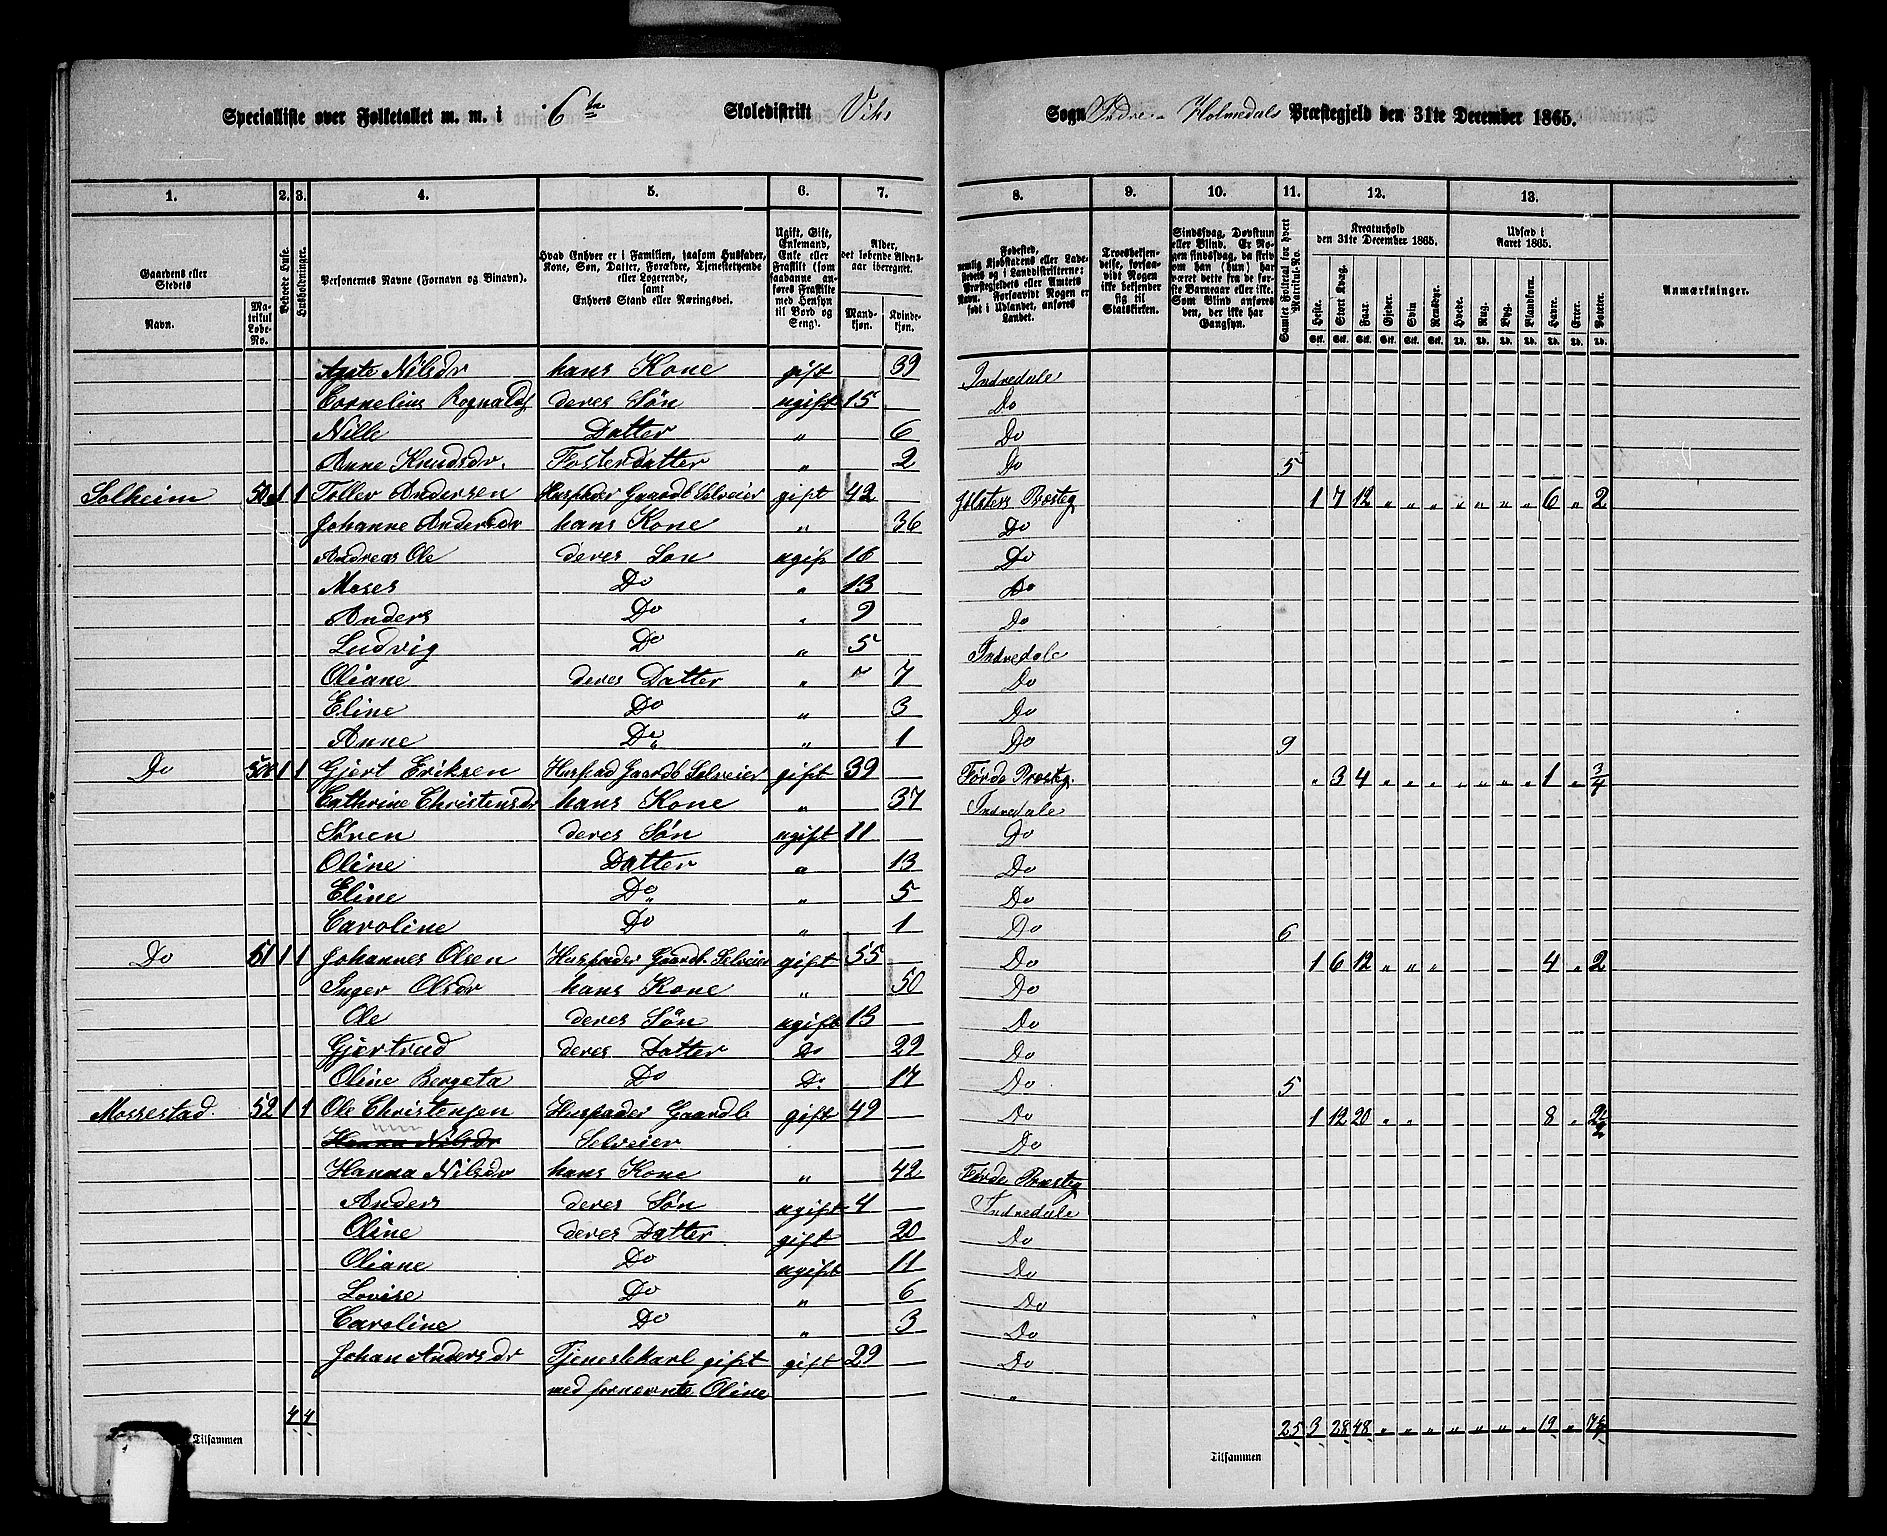 Specialliste over Folketallet m. m. i 6te Skoledistrikt Viks Sogn Indre Holmedals Præstegjeld den 31te December 1865.
1. 2. 3. 4. 5. 6. 7. 8. 9. 10. 11. 12. 13.
Gaardens eller Stedets
Navn.
Matrikul Løbe-No.
Beboede Huse.
Husholdninger.
Personernes Navne (Fornavn og Binavn).
Hvad Enhver er i Familien, saasom Husfader, Kone, Søn, Datter, Forældre, Tjenestetydende eller Logerende, samt Enhvers Stand eller Næringsvei.
Ugift, Gift, Enkemand, Enke eller Fraskilt (som saadanne anføres Fraskilte med Hensyn til Bord og Seng).
Alder, det løbende Aldersaar iberegnet.
Mandkjøn. Kvindekjøn.
Fødested, nemlig Kjøbstadens eller Ladestedets og i Landdistrikterne: Præstegjeldets eller Amtets Navn. Forsaavidt Nogen er født i Udlandet, anføres Landet.
Troesbekjendelse, forsaavidt Nogen ikke bekjender sig til Statskirken.
Sindssvag, Døvstum eller Blind. Er Nogen sindssvag, da skrives om han (hun) har været dette fra de første Barneaar eller ikke. Som Blind anføres den, der ikke har Gangsyn.
Samlet Folketal for hvert Matrikul-No.
Kreaturhold den 31te December 1865.
Udsæd i Aaret 1865.
Heste. Stort Kvæg. Faar. Gjeder. Svin. Rensdyr. Hvede. Rug. Byg. Blandkorn. Havre. Erter. Poteter.
Stk. Stk. Stk. Stk. Stk. Stk. Td. Td. Td. Td. Td. Td. Td.
Anmærkninger.
Agte Nilsdr hans Kone gift 39 Indredale
Cornelius Rognalds deres Søn ugift 15 Do
Nille Datter " 6 Do
Anne Knudsdr. Fosterdatter " 2 Do 5
Solheim 50a 1 1 Tollev Andersen Husfader Gaardb Selveier gift 42 Jølsters Præsteg 1 7 12 " " " " " " " 6 " 2
Johanne Andersdr hans Kone " 36 Do
Andreas Ole deres Søn ugift 16 Do
Moses Do " 13 Do
Anders Do " 9 Do
Ludvig Do " 5 Indredale
Oliane deres Datter " 7 Do
Eline Do " 3 Do
Anne Do " 1 Do 9
Do 50b 1 1 Gjert Eriksen Husfad Gaardb Selveier gift 39 Førde Præsteg. " 3 4 " " " " " " " 1 " 3/4
Cathrine Christensdr hans Kone " 37 Indredale
Søren deres Søn ugift 11 Do
Oline Datter " 13 Do
Eline Do " 5 Do
Caroline Do " 1 Do 6
Do 51 1 1 Johannes Olsen Husfader Gaardb. Selveier gift 55 Do 1 6 12 " " " 4 " 2
Inger Olsdr hans Kone " 50 Do
Ole deres Søn ugift 13 Do
Gjertrud deres Datter Do 22 Do
Oline Bergeta Do Do 17 Do 5
Mossestad. 52 1 1 Ole Christensen Husfader Gaardb gift 49 Do 1 12 20 " " 8 "
Hanna Nilsdr Selveier Do
Hanna Nilsdr hans Kone " 42 Førde Præsteg
Anders deres Søn ugift 4 Indredale
Oline deres Datter gift 20 Do
Oliane Do ugift 11 Do
Lovise Do " 6 Do
Caroline Do " 3 Do
Johan Andersdr Tjenestekarl gift gift 29 Do
med fornevnte Oline "
4 4 25 3 28 48 " " " " " " " 19 "
Tilsammen Tilsammen